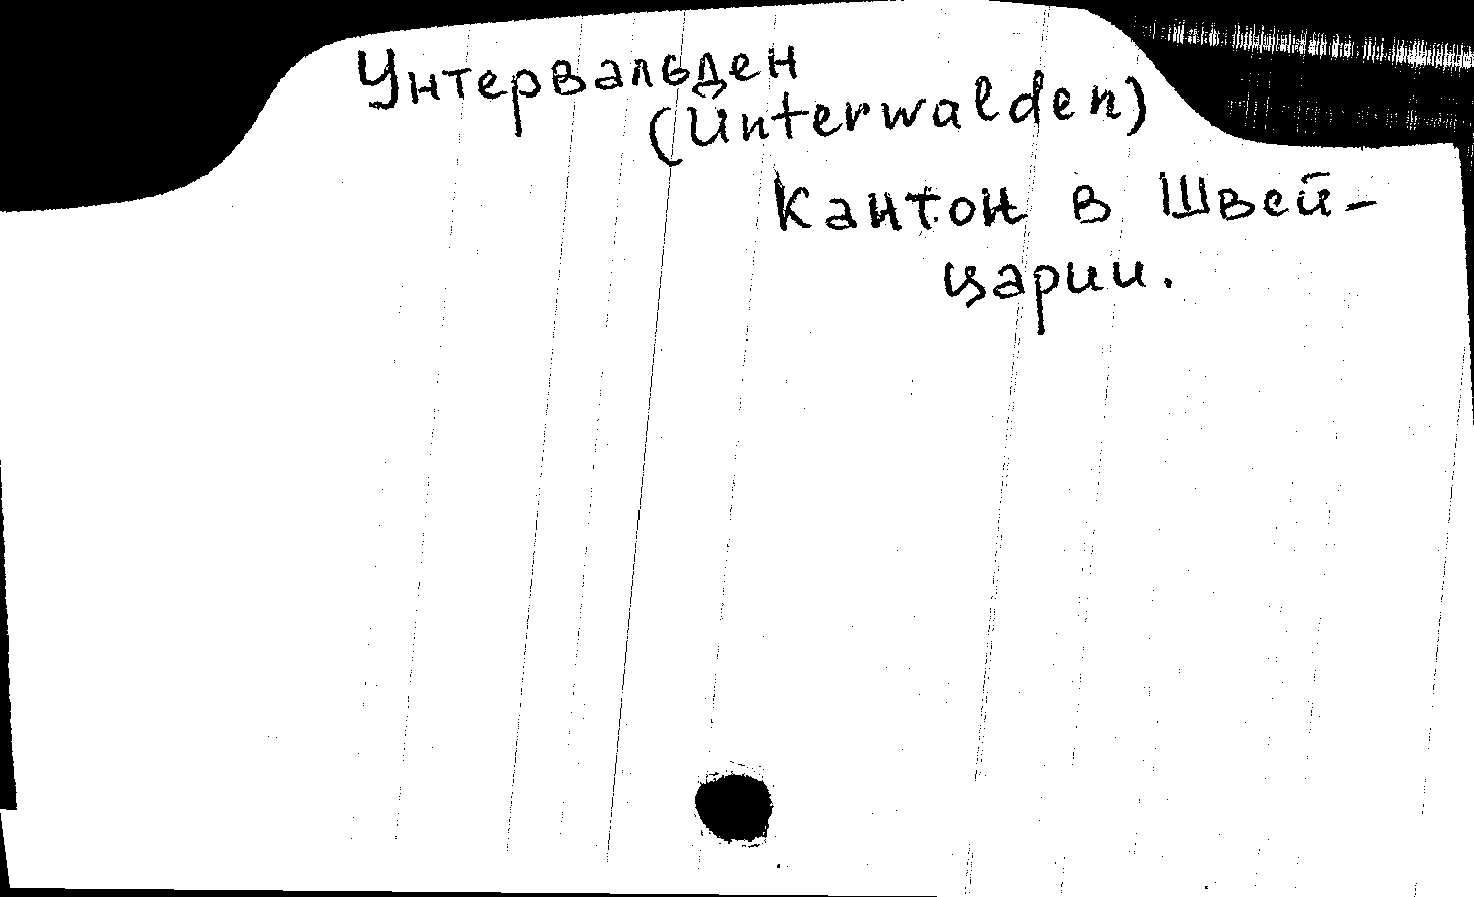 Унтервальден
(Unterwalden)
Кантон в Швей-
царии.